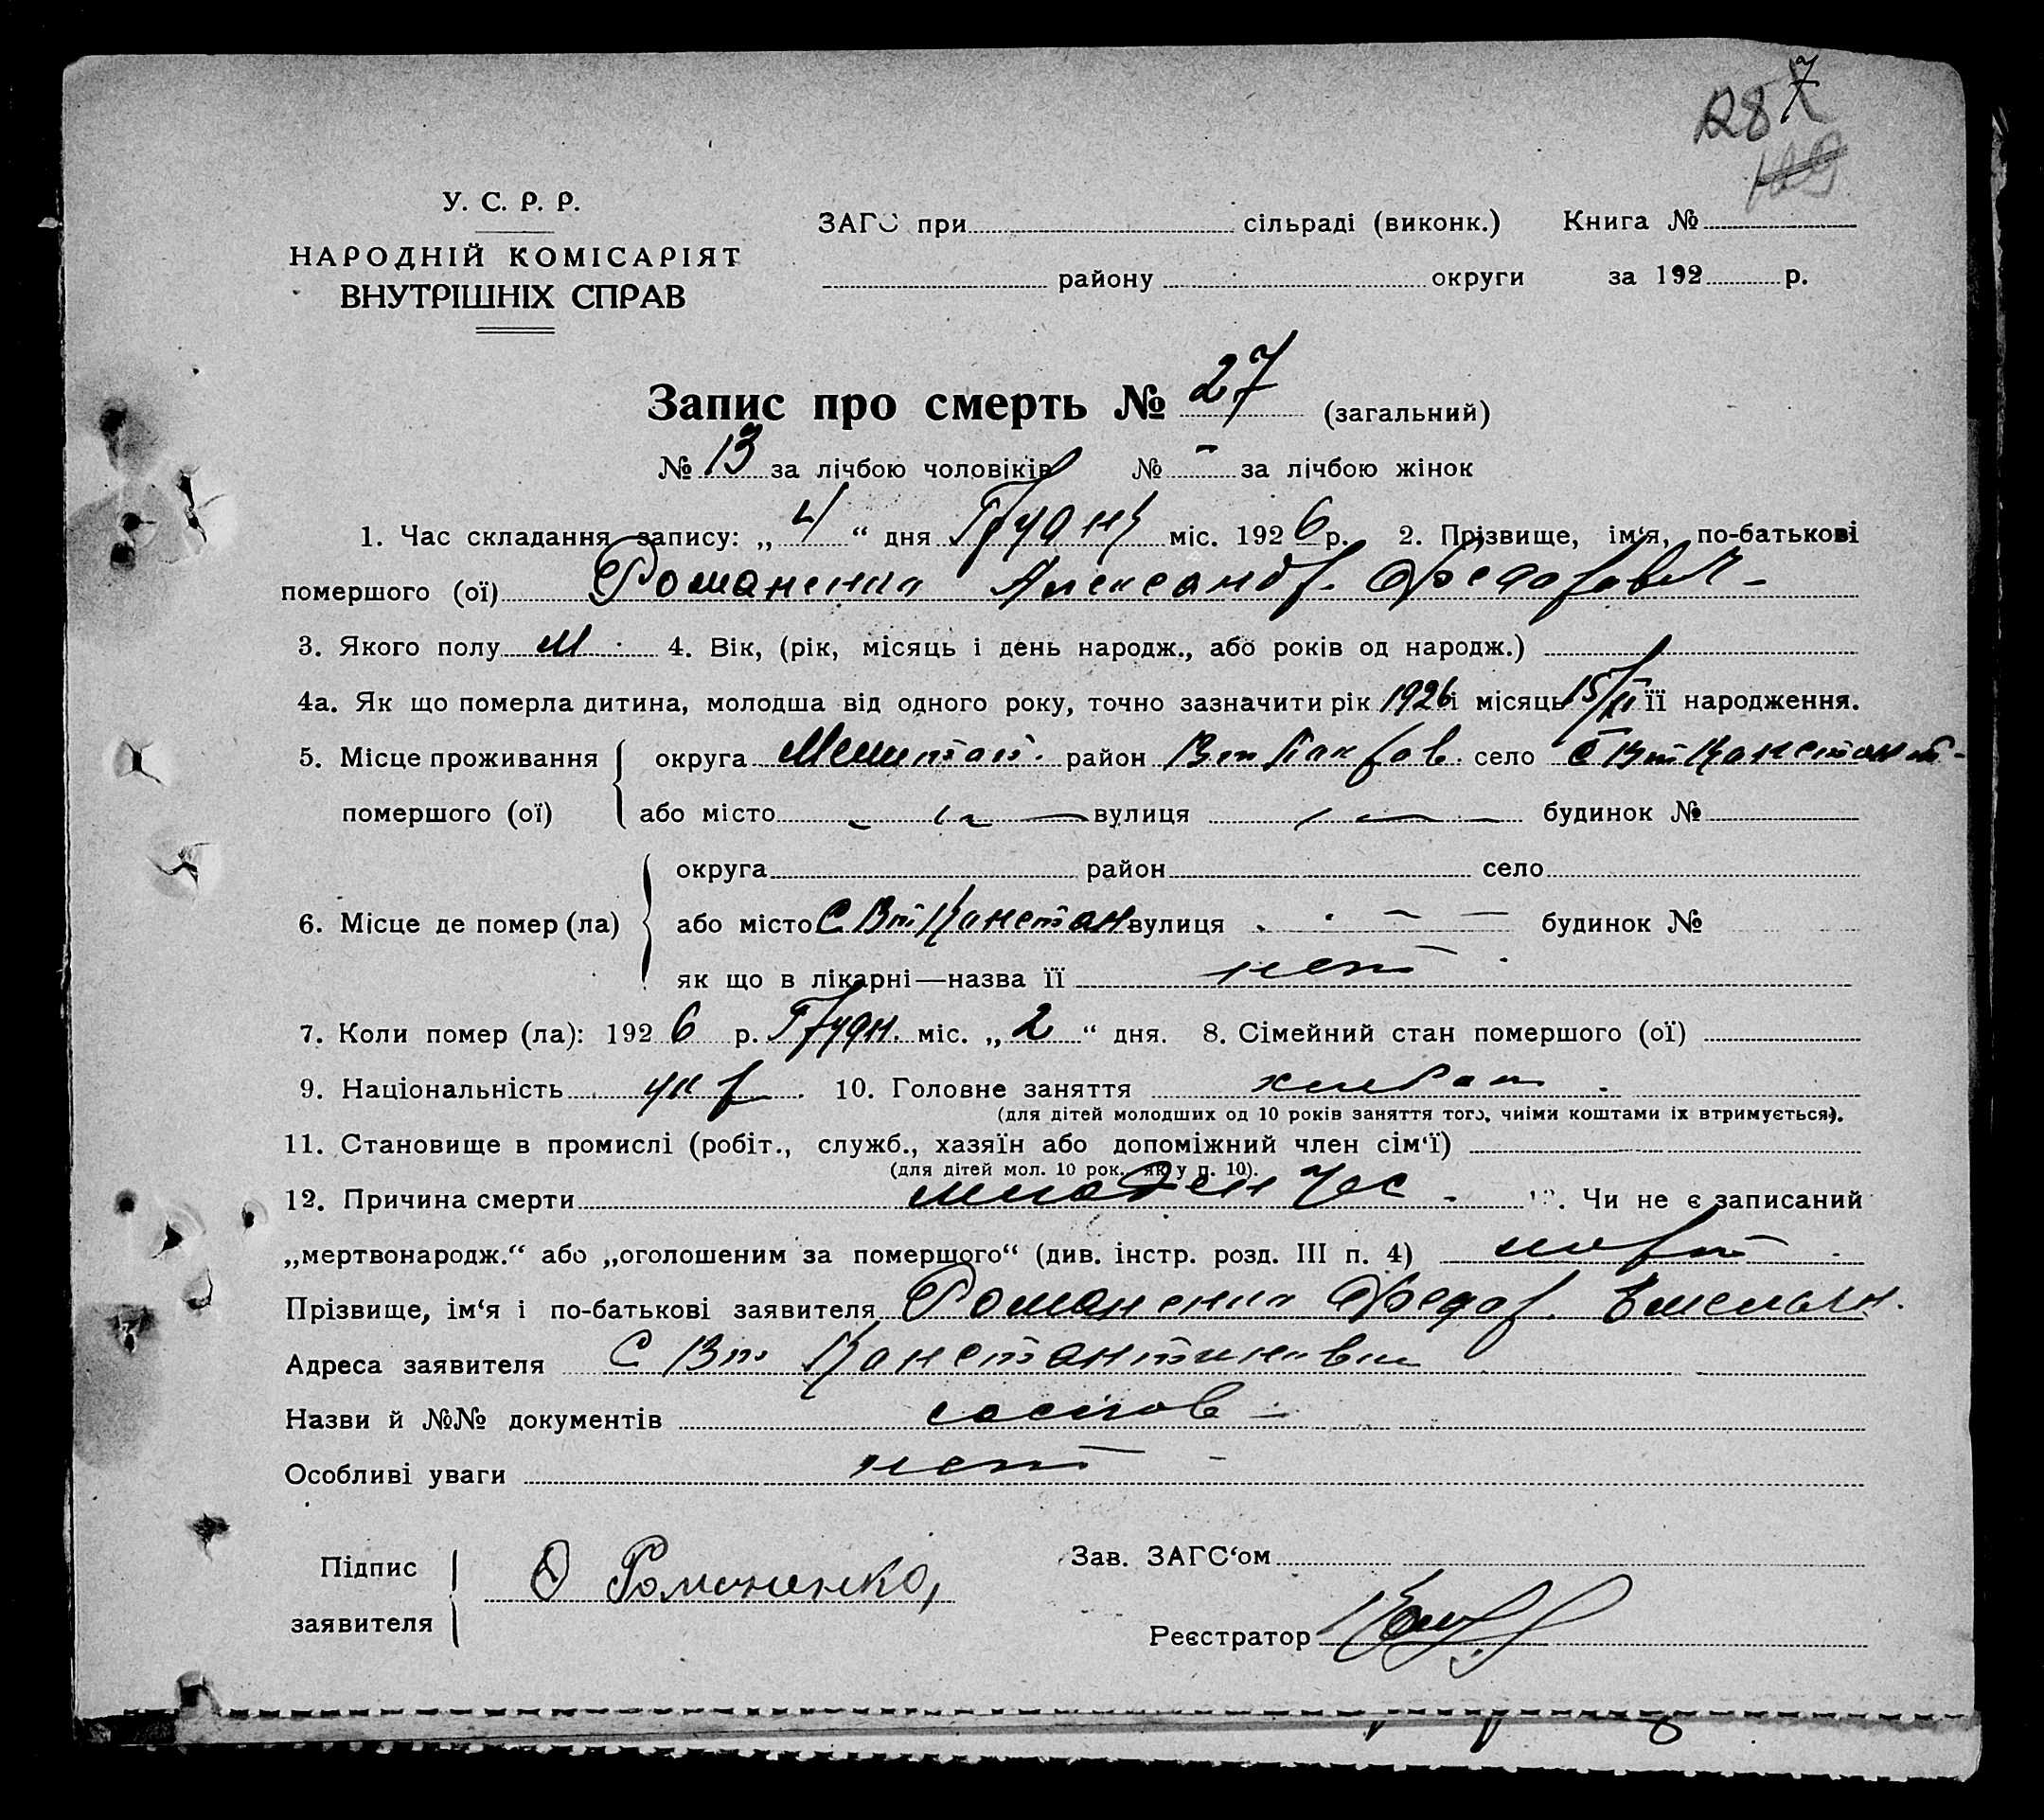 7
У. С. Р. Р.
ЗАГС при сільраді (виконк.) Книга №
НАРОДНІЙ КОМІСАРІЯТ
району округи за 192 р.
ВНУТРІШНІХ СПРАВ
Запис про смерть № 27 (загальний)
№ 13 за лічбою чоловіків № – за лічбою жінок
1. Час складання запису: „ 4 “ дня Грудн міс. 1926 р. 2. Прізвище, ім‘я, по-батькові
помершого (ої) Романенко Александр. Федорович –
3. Якого полу м. 4. Вік, (рік, місяць і день народж., або років од народж.)
4а. Як що померла дитина, молодша від одного року, точно зазначити рік 1926 і місяць 15/II її народження.
5. Місце проживання округа Мелитоп. район Вт Покров. село с Вт Констант-
помершого (ої) або місто вулиця будинок №
округа район село
6. Місце де помер (ла) або місто С Вт Констан вулиця будинок №
як що в лікарні—назва її нет
7. Коли помер (ла): 1926 р. Грудн. міс. „ 2 “ дня. 8. Сімейний стан помершого (ої)
9. Національність укр. 10. Головне заняття
(для дітей молодших од 10 років заняття того, чиїми коштами їх втримується).
11. Становище в промислі (робіт., служб., хазяїн або допоміжний член сім‘ї)
(для дітей мол. 10 рок., як у п. 10).
12. Причина смерти . Чи не є записаний
„мертвонародж.“ або „оголошеним за померщого“ (див. інстр. розд. III п. 4)
Прізвище, ім‘я і по-батькові заявителя Романенко Федор. Емельян.
Адреса заявителя С Вт Константиновки
Назви й №№ документів
Особливі уваги нет
Підпис Зав. ЗАГС‘ом
Ф Романенко,
заявителя Реєстратор